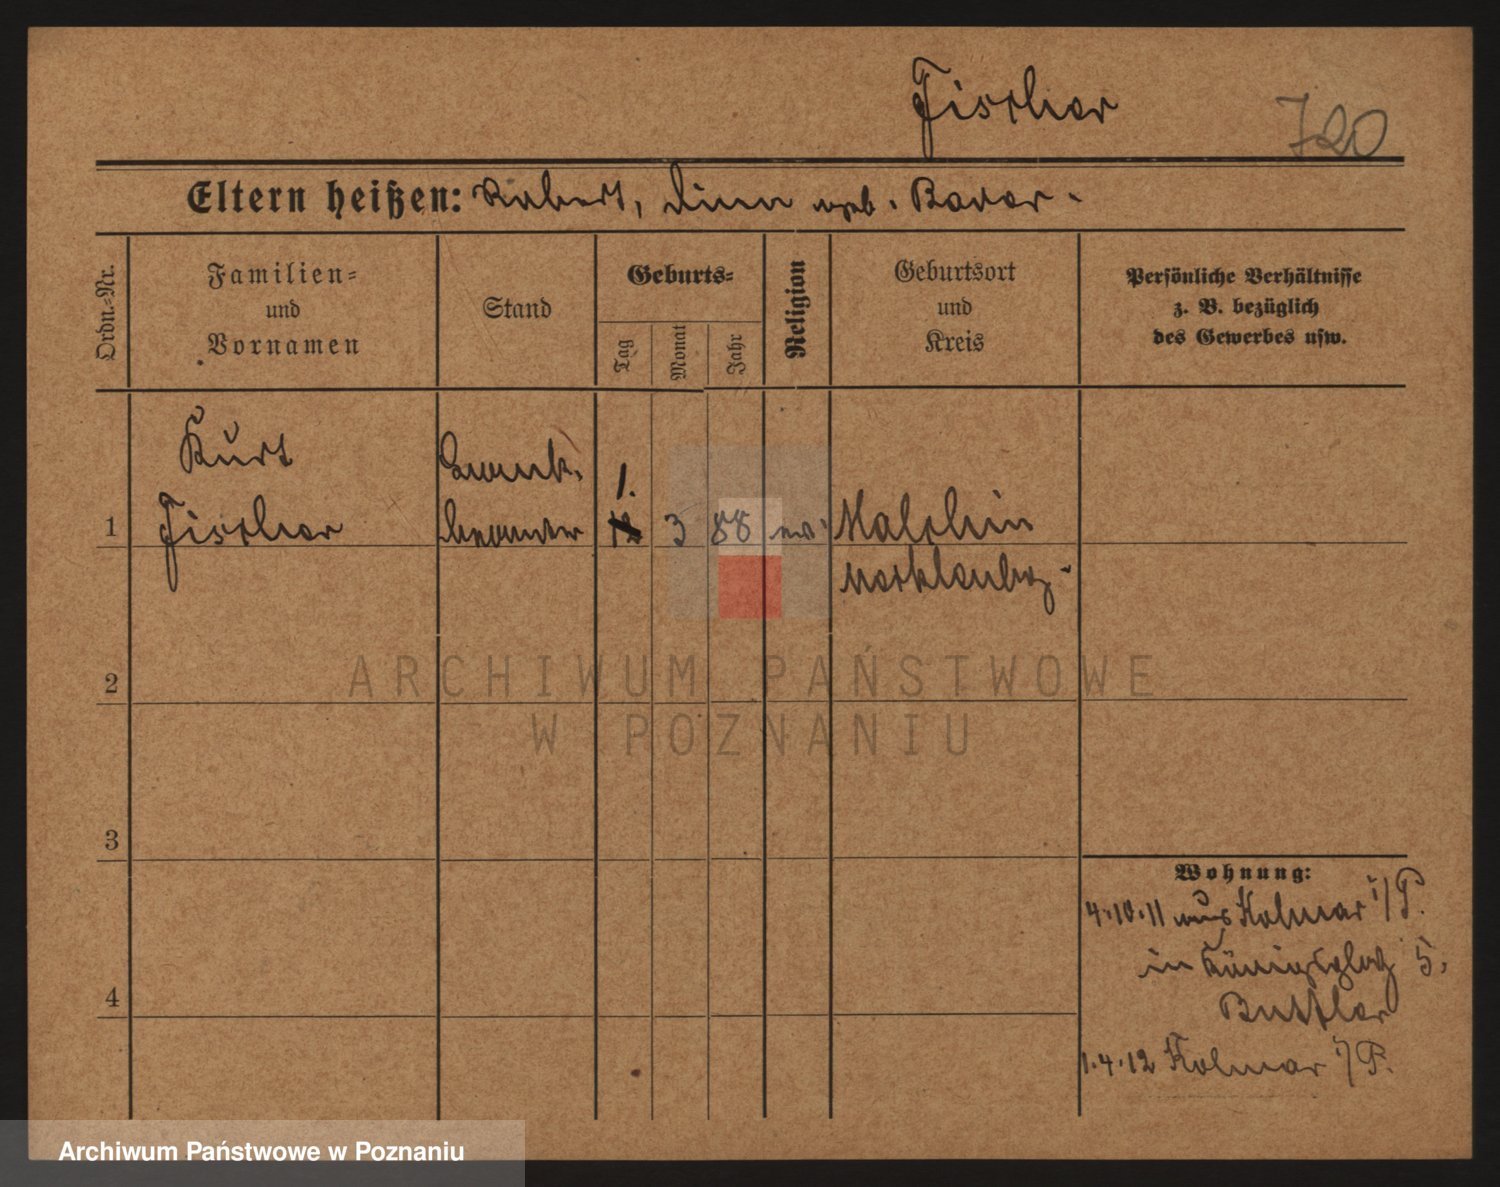 Fischer
720
Eltern heißen: Robert, Lina geb. Bader.
Ordn.-Nr.
Familien-
und
Vornamen
Stand
Geburts-
Tag
Monat
Jahr
Religion
Geburtsort
und
Kreis
Persönliche Verhältnisse
z. B. bezüglich
des Gewerbes usw.
Kurt
Bank-
1.
1 Fischer beamter 12 3 88 ev. Malchin
Mecklenbg.
2
ARCHIWUM PAŃSTWOWE
W POZNANIU
3
Wohnung:
4.10.11 aus Kolmar i/P.
in Königsplatz 5.
4
Buttler
1.4.12 Kolmar i/P.
Archiwum Państwowe w Poznaniu